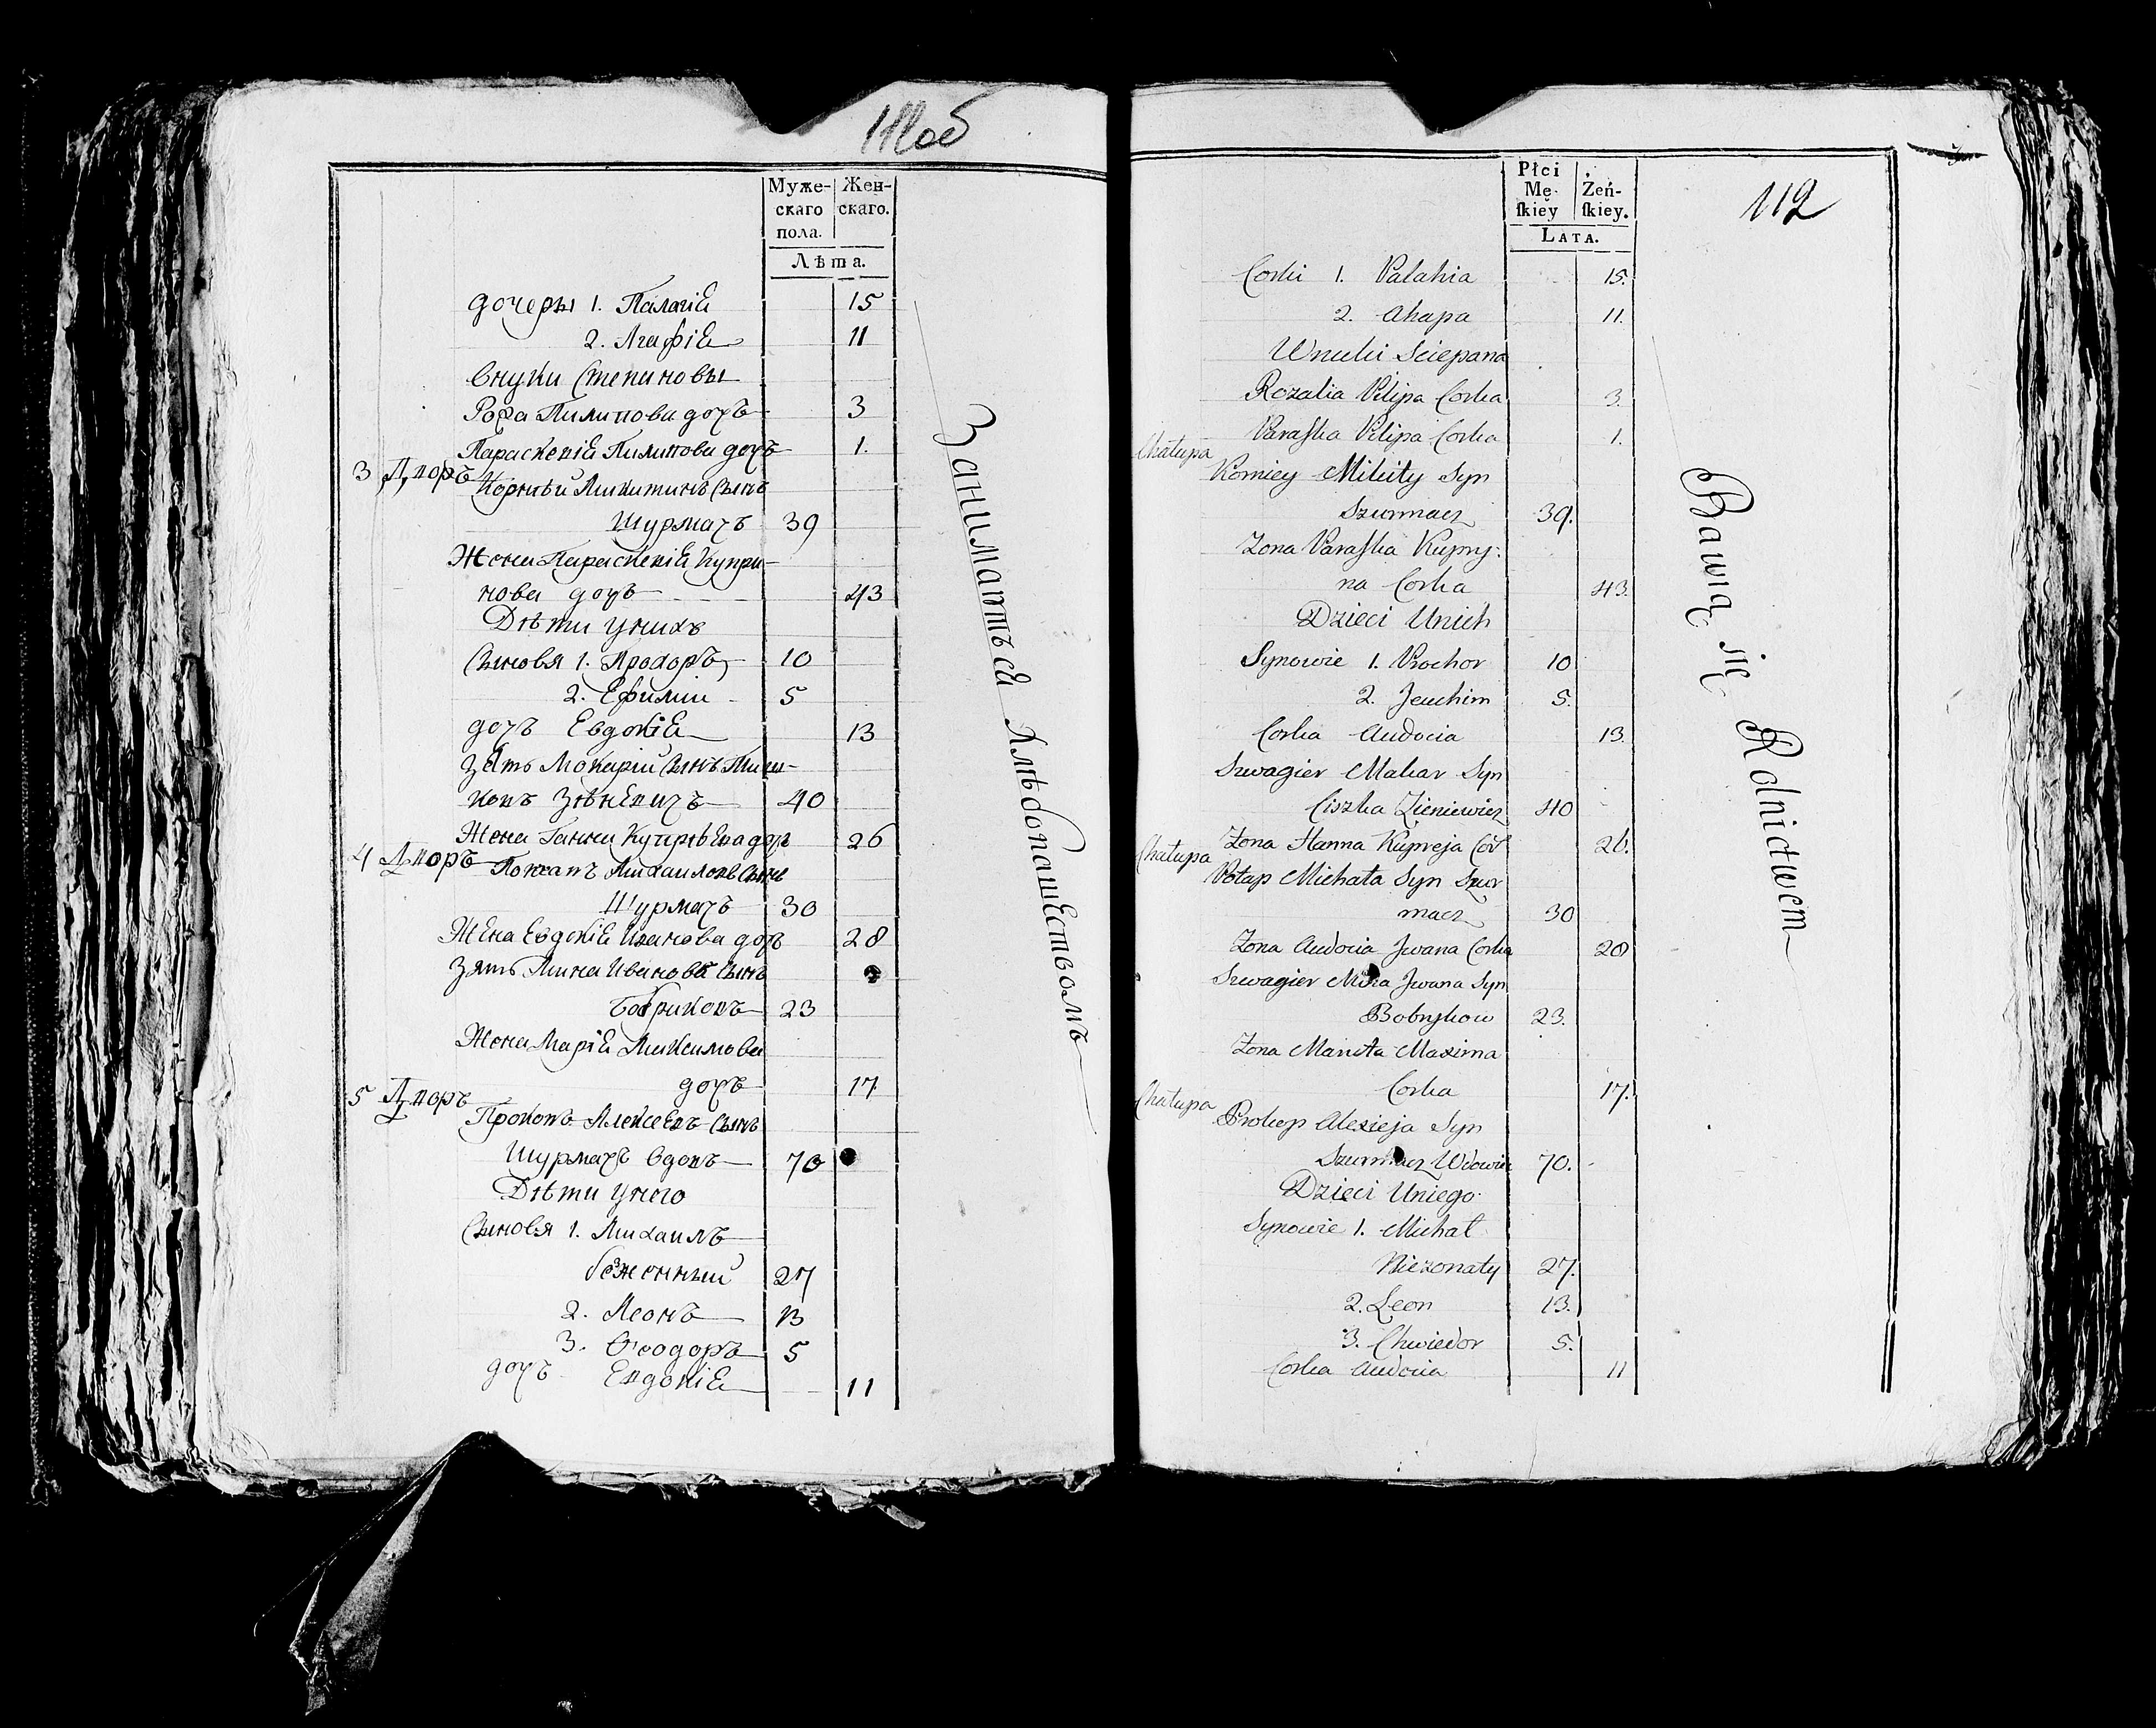 112об
Муже-
скаго
пола.
Жен-
скаго.
Лѣта.
дочеры 1. Палагiя 15
2. Агафiя 11
внуки Степановы
Роза Пилипова дочъ 3
Параскевiя Пилипова дочъ 1.
3 Дворъ
Корнѣй Микитинъ сынъ
Шурмачъ 39
Жена Параскевiя Купри-
нова дочъ 43
Дѣти у нихъ
сыновя 1. Прохоръ 10
2. Ефимiй 5
дочъ Евдокiя 13
зять Мокарiй сынъ Тиш-
ковъ Зѣнѣвичъ 40
Жена Ганна Купрѣева доч 26
4 Дворъ
Потапъ Михаиловъ сынъ
Шурмачъ 30
Жена Евдокiя Иванова доч 28
Зять Мина Ивановъ сынъ
Бобриковъ 23
Жена Марiя Максимова
дочъ 17
5 Дворъ
Прокопъ Алексѣевъ сынъ
Шурмачъ вдовъ 70
Дѣти у него
сыновя 1. Михаилъ
безженный 27
2. Леонъ 13
3. Ѳеодоръ 5
дочъ Евдокiя 11
Заниматься хлѣбопашествомъ
112
Płci
Mę-
ſkiey
Żeń-
ſkiey.
Lata.
Corki 1. Palahia 15.
2. Ahapa 11.
Wnuki Sciepana
Rozalia Pilipa Corka 3.
Paraſka Pilipa Corka 1.
Chałupa
Korniey Mikity Syn
Szurmacz 39.
Zona Paraſka Kupry-
na Corka 43.
Dzieci Unich
Synowie 1. Prochor 10
2. Jeuchim 5.
Corka Audocia 13.
Szwagier Makar Syn
Ciszka Zieniewicz 40
Zona Hanna Kupreja Cór 26.
Chałupa
Potap Michała Syn Szur
macz 30
Zona Audocia Jwana Corka 28
Szwagier Mina Jwana Syn
Bobrykow 23.
Zona Maruta Maxima
Corka 17.
Chałupa
Prokop Alexieja Syn
Szurmacz Wdowiec 70.
Dzieci Uniego
Synowie 1. Michał
Niezonaty 27.
2. Leon 13.
3. Chwiedor 5.
Corka Audocia 11
Bawią się Rolnictwem